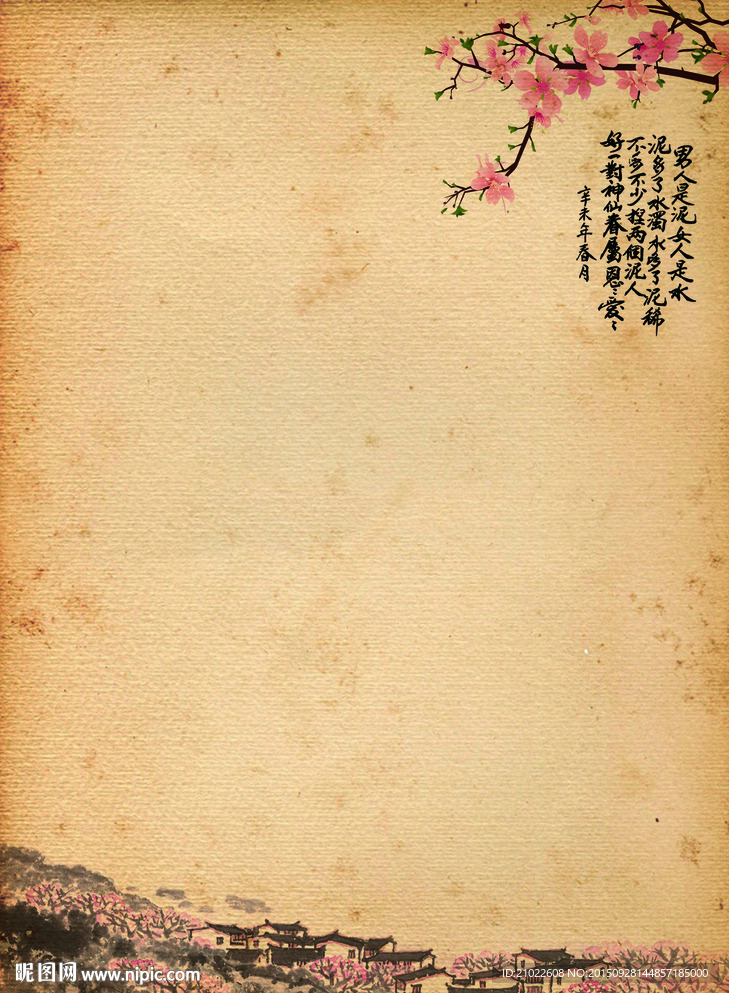 男人是泥女人是水
泥多了水濁水多了泥稀
不多不少捏两個泥人
好一對神仙眷屬恩〻愛〻
辛未年春月
昵图网 www.nipic.com
ID:21022608 NO:20150928144857185000